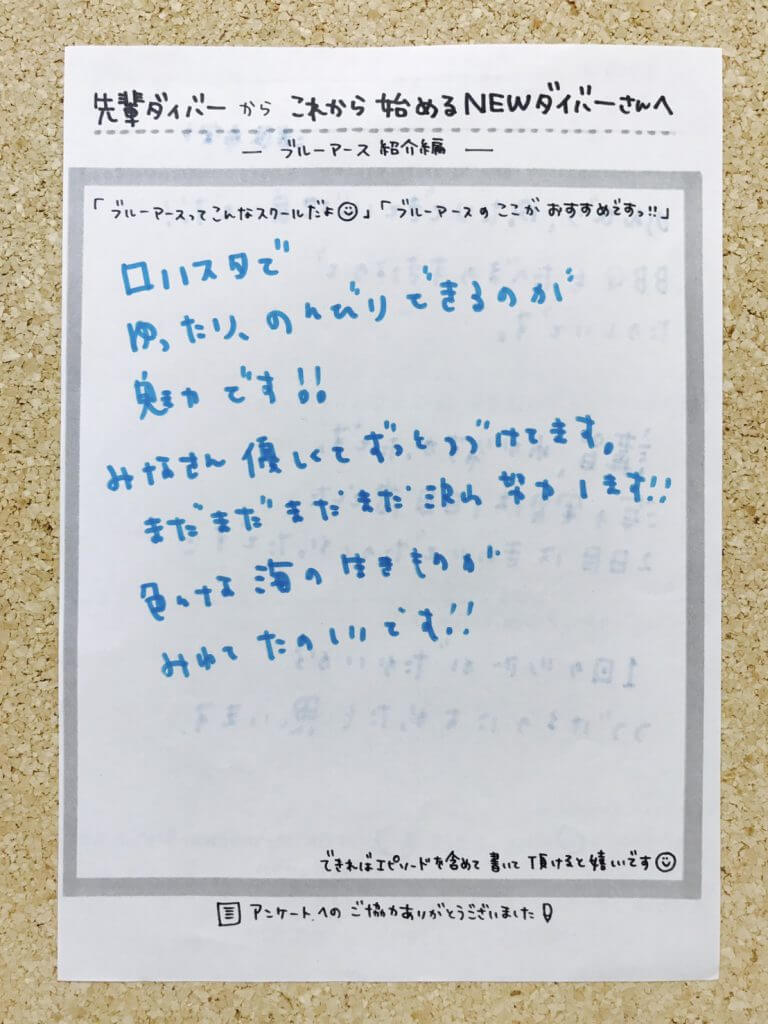 先輩ダイバーから これから始めるNEWダイバーさんへ
― ブルーアース紹介編 ―
「ブルーアースってこんなスクールだよ☺」「ブルーアースの ここが おすすめですっ!!」
ロハスタで
ゆったり、のんびりできるのが
魅力です!!
みなさん優しくてずっとつづけてます。
まだまだまだまだ 努力します!!
色々な海の生きものが
みれてたのしいです!!
できればエピソードを含めて書いて頂けると嬉しいです☺
アンケートへのご協力ありがとうございました